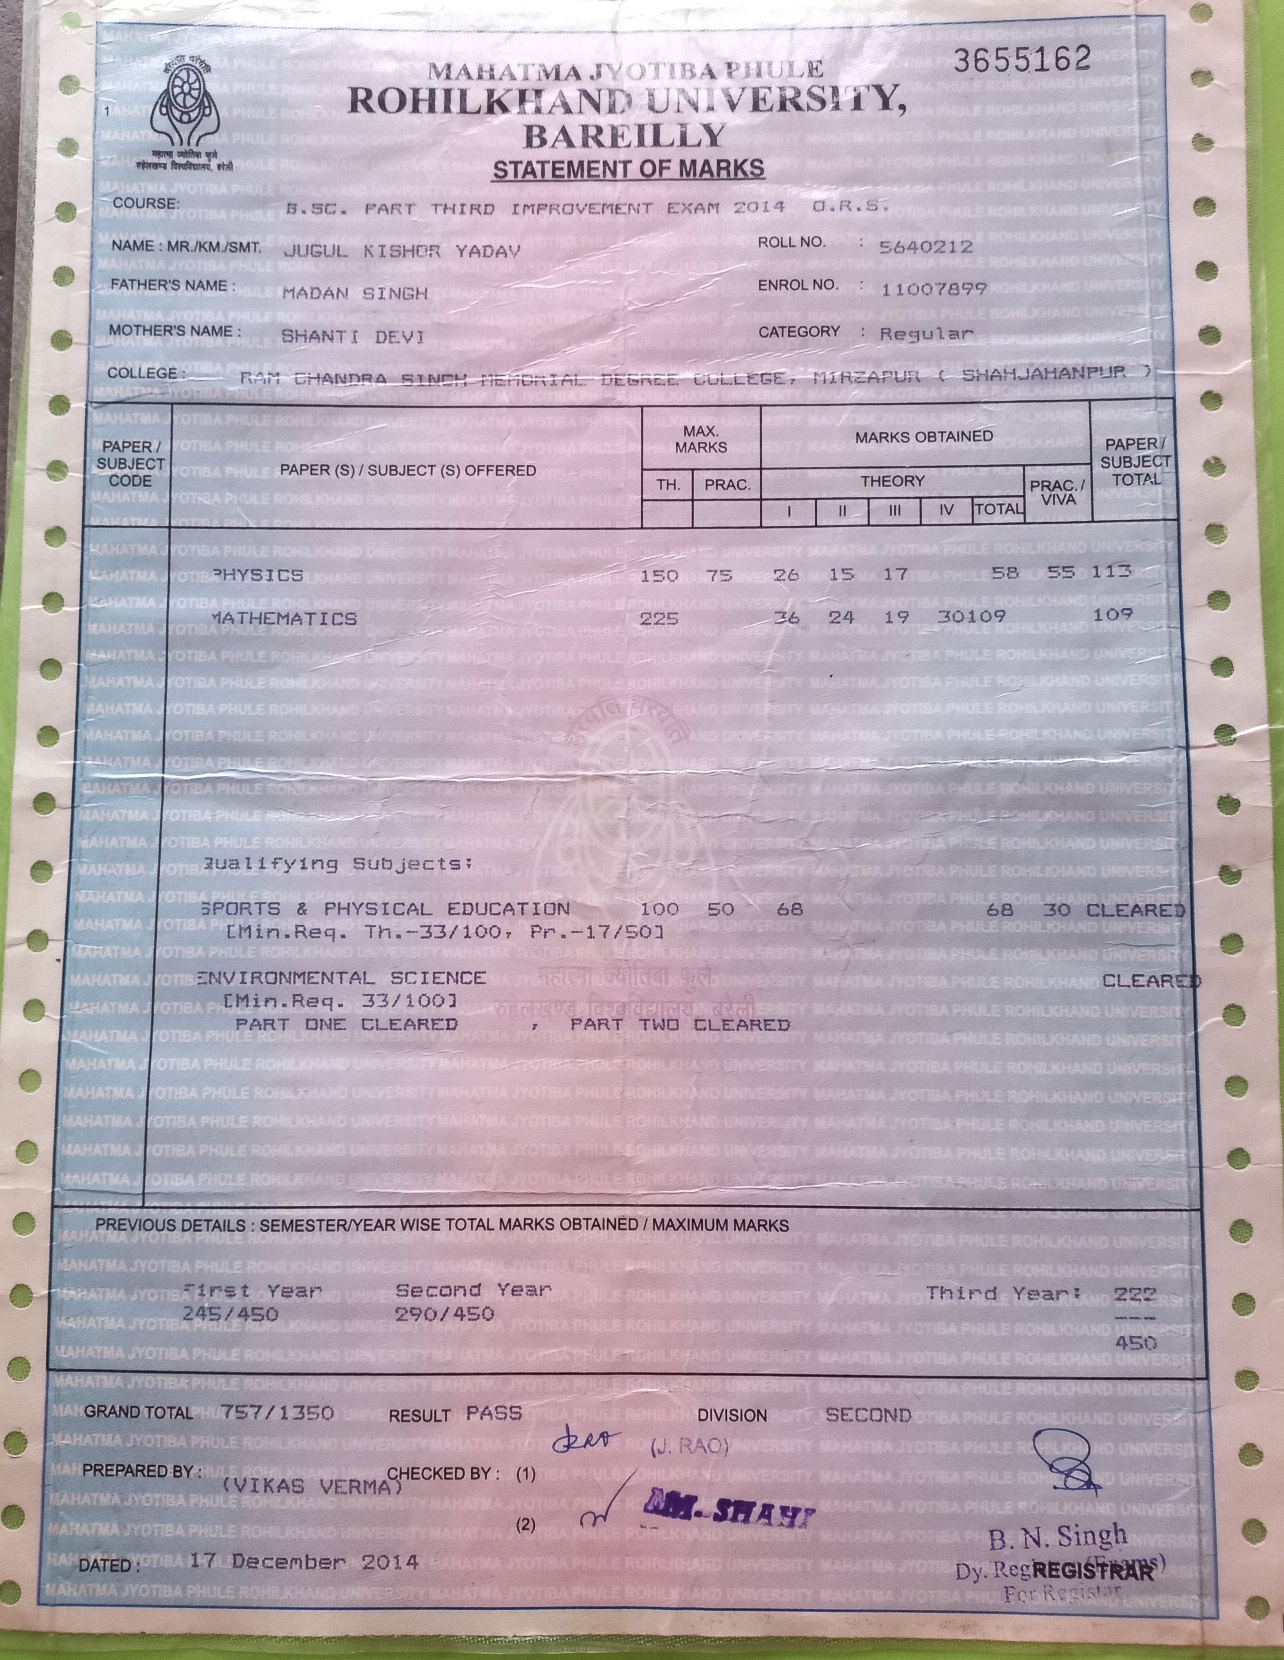 3655162
1
MAHATMA JYOTIBA PHULE
ROHILKHAND UNIVERSITY,
BAREILLY
STATEMENT OF MARKS
महात्मा ज्योतिबा फुले
रुहेलखण्ड विश्वविद्यालय, बरेली
COURSE: B.SC. PART THIRD IMPROVEMENT EXAM 2014 O.R.S.
NAME : MR./KM./SMT. JUGUL KISHOR YADAV ROLL NO. : 5640212
FATHER'S NAME : MADAN SINGH ENROL NO. : 11007899
MOTHER'S NAME : SHANTI DEVI CATEGORY : Regular
COLLEGE : RAM CHANDRA SINGH MEMORIAL DEGREE COLLEGE, MIRZAPUR ( SHAHJAHANPUR )
PAPER / SUBJECT CODE PAPER (S) / SUBJECT (S) OFFERED MAX. MARKS MARKS OBTAINED PAPER / SUBJECT TOTAL
TH. PRAC. THEORY PRAC. / VIVA
I II III IV TOTAL
PHYSICS 150 75 26 15 17 58 55 113
MATHEMATICS 225 36 24 19 30109 109
Qualifying Subjects:
SPORTS & PHYSICAL EDUCATION 100 50 68 68 30 CLEARED
[Min.Req. Th.-33/100, Pr.-17/50]
ENVIRONMENTAL SCIENCE CLEARED
[Min.Req. 33/100]
PART ONE CLEARED , PART TWO CLEARED
महात्मा ज्योतिबा फुले
रुहेलखण्ड विश्वविद्यालय, बरेली
PREVIOUS DETAILS : SEMESTER/YEAR WISE TOTAL MARKS OBTAINED / MAXIMUM MARKS
First Year Second Year Third Year: 222
245/450 290/450 ---
450
GRAND TOTAL 757/1350 RESULT PASS DIVISION SECOND
(J. RAO)
PREPARED BY : (VIKAS VERMA) CHECKED BY : (1)
(2) SHAHI
B. N. Singh
DATED : 17 December 2014
Dy. REGISTRAR (Exams)
For Registar